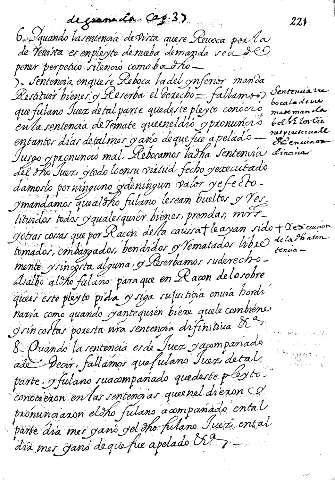 de granada (pag. 3)
221
6. Y quando la sentencia de vista que se Revoca por la
de Revista es em pleyto de nueba demanda se a de
poner perpetuo silencio como ba dho
7. Sentencia en que se Reboca la del ynferior manda
Restituir bienes y Reserba el derecho = fallamos
que fulano Juez de tal parte que deste pleyto conocio
en la sentencia de Remate que en el dio y pronuncio
en tantos dias de tal mes y año de que fue apelado
Juzgo y pronuncio mal. Rebocamos la dha sentencia
del dho Juez, y todo lo en su virtud fecho y executado
damoslo por ninguno y de ningun valor y efeto
y mandamos que al dho fulano le sean bueltos y Res
tituidos todos y qualesquier bienes, prendas, mrs
y otras cosas que por Raçon desta caussa + le ayan sido
tomados, embargados, bendidos y Rematados libre
mente y sin costa alguna, y Reserbamos su derecho
a salbo al dho fulano para que en Raçon de lo sobre
que es este pleyto pida, y siga su justicia en via hordi
naria como quando y ante quien biene que le combiene
y sin costas por esta nra sentencia difinitiva &ª
8. Quando la sentencia es de Juez y acompañado
a de decir, fallamos que fulano Juez de tal
parte, y fulano su acompañado que deste pleyto
conocieron en las sentencias que en el dieron y
pronunciaron el dho fulano acompañado en tal
parte dia mes y año y el dho fulano Juez en tal
dia mes y año de que fue apelado &ª
Sentencia re
bocatoria
+ y execucion
de la dha sen
tencia